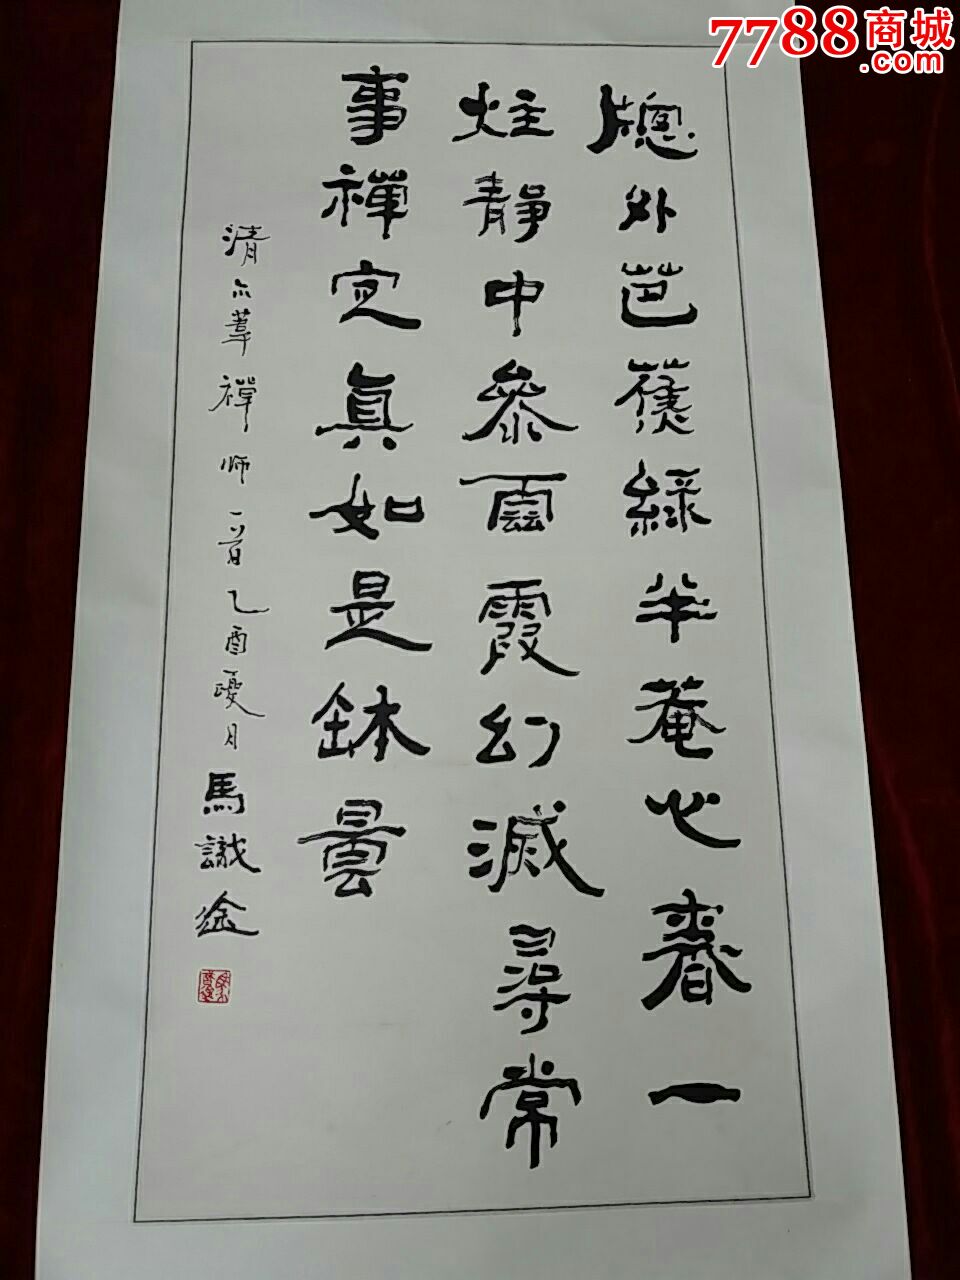 7788商城
.com
牕外芭蕉綠半菴心香一
炷靜中參雲霞幻滅尋常
事禪定真如是鉢曇
清六葦禪師一首乙酉夏月馬識途